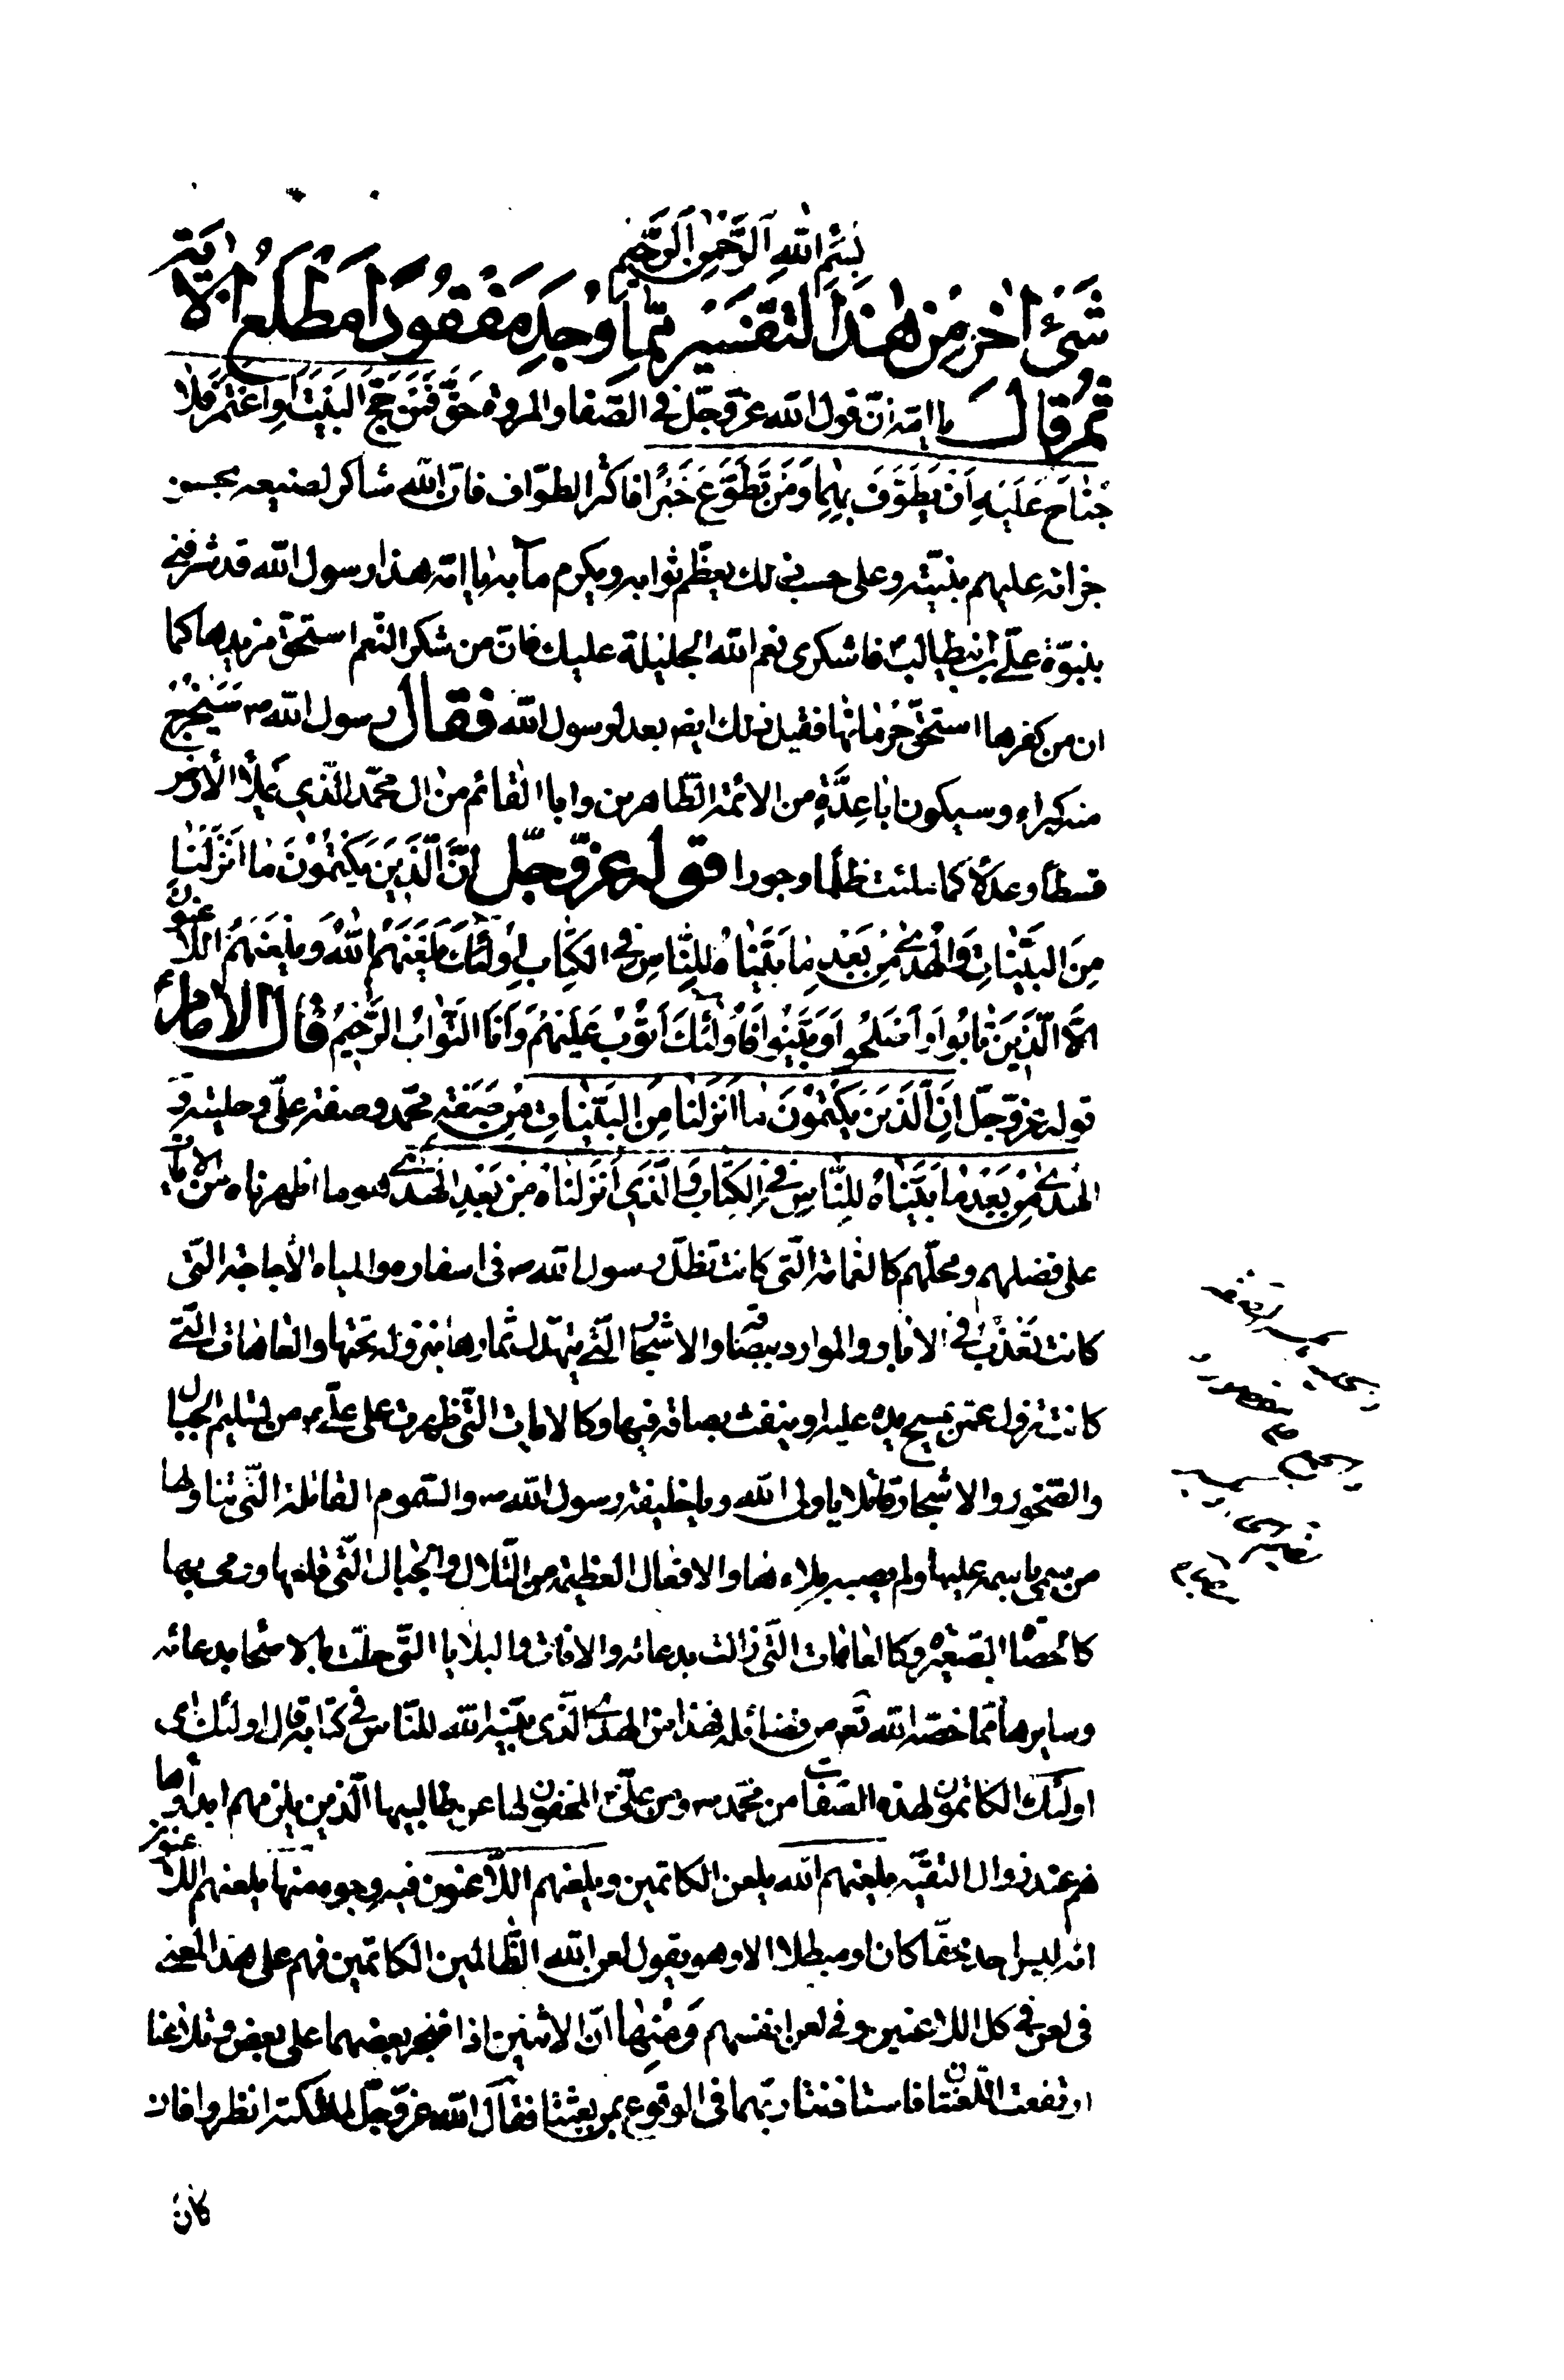 بِسْمِ اللهِ الرَّحْمٰنِ الرَّحِيمِ
شَيْءٌ اٰخَرُ مِنْ هٰذَا التَّفْسِيرِ مِمَّا وُجِدَ مَفْقُودًا مَطْلَعُ الاٰيَةِ
ثُمَّ قَالَ يا امّة انّ قول الله عزّ وجلّ في الصّفا والمروة حَقٌّ فَمَنْ حَجَّ الْبَيْتَ اَوِ اعْتَمَرَ فَلَا
جُنَاحَ عَلَيْهِ اَنْ يَطَّوَّفَ بِهِمَا وَمَنْ تَطَوَّعَ خَيْرًا فاكثر الطوّاف فانّ الله شاكر لصنيعه بحسن
جزائه عليهم بنيّته وعلى حسب ذلك يعظّم ثوابه ويكرم مآبه يا امّة هذا رسول الله قد شرفني
بنبوّة علىّ بن ابيطالب فاشكرى نعم الله الجليلة عليك فان من شكر النّعم استحق مزيدها كما
ان من كفرها استحق حرمانها فقيل ذلك ايضه بعد لرسول الله فقال رسول الله ص سَيَخْرُجُ
منه كبراء وسيكون ابا عِدَّةٍ من الائمة الطّاهرين وابا القائم من ال محمّد الّذي يملأ الأرض
قسطا وعدلا كما ملئت ظلما وجورا قوله عزّ وجلّ اِنَّ الَّذِينَ يَكْتُمُونَ مَا اَنْزَلْنَا
مِنَ الْبَيِّنَاتِ وَالْهُدٰى مِنْ بَعْدِ مَا بَيَّنَّاهُ لِلنَّاسِ فِي الْكِتَابِ اُولٰئِكَ يَلْعَنُهُمُ اللهُ وَيَلْعَنُهُمُ اللّاعِنُونَ
اِلَّا الَّذِينَ تَابُوا وَاَصْلَحُوا وَبَيَّنُوا فَاُولٰئِكَ اَتُوبُ عَلَيْهِمْ وَاَنَا التَّوَّابُ الرَّحِيمُ قال الامام
قوله عزّ وجلّ اِنَّ الَّذِينَ يَكْتُمُونَ مَا اَنْزَلْنَا مِنَ الْبَيِّنَاتِ مِنْ صِفَةِ محمّد وصفة علىّ وحليته وَ
الْهُدٰى مِنْ بَعْدِ مَا بَيَّنَّاهُ لِلنَّاسِ فِي الْكِتَابِ وَالَّذِي اَنْزَلْنَاهُ مِنْ بَعْدِ الْهُدٰى هو ما اظهرناه من الايات
على فضلهم ومحلّهم كالغمامة الّتى كانت تظلّ رسول الله ص فى اسفاره والمياه الأجاجة الّتى
كانت تعذب في الابار والموارد ببصاقه والاشجار الّتى يتهدّل ثمارها بنزوله تحتها والعاهات الّتى
كانت تزول عمّن يمسح يده عليه او ينفث بصاقه فيها وكالايات الّتى ظهرت على علىّ من تسليم الجبال
والصّخور والاشجار قائلا يا ولى الله ويا خليفة رسول الله ص والسّموم القاتلة الّتى تناولها
من سمى باسمه عليها ولم يصبه بلاءها والافعال العظيمة من التّلال والجبال الّتى قلعها ورمى بها
كالحصاة الصّغيرة وكالعاهات الّتى زالت بدعائه والافات والبلايا الّتى حلّت بالاصحّا بدعائه
وسايرها ممّا خصّه الله تع من فضائله فهذا من الهدى الّذى بيّنه الله للنّاس في كتابه قال اولئك اى
اولئك الكاتمون لهذه الصّفات من محمّد ص ومن علىّ المخفون لها عن طالبيها الّذين يلزمهم ابداؤها
لهم عند زوال التقيّة يلعنهم الله يلعن الكاتمين ويلعنهم اللّاعنون فيه وجوه منها يلعنهم اللّاعنون
انه ليس احد محقّا كان او مبطلا الا وهو يقول لعن الله الظّالمين الكاتمين فهم على هذا المعنى
فى لعن في كل اللاعنين وفي لعن انفسهم وَمِنْهَا انّ الاثنين اذا ضجر بعضهما على بعض وتلاعنا
ارتفعت اللّعنتان فاستاذنتا ربّهما فى الوقوع بمن بعثتا فقال الله عزّ وجلّ لملئكته انظروا فان
كان